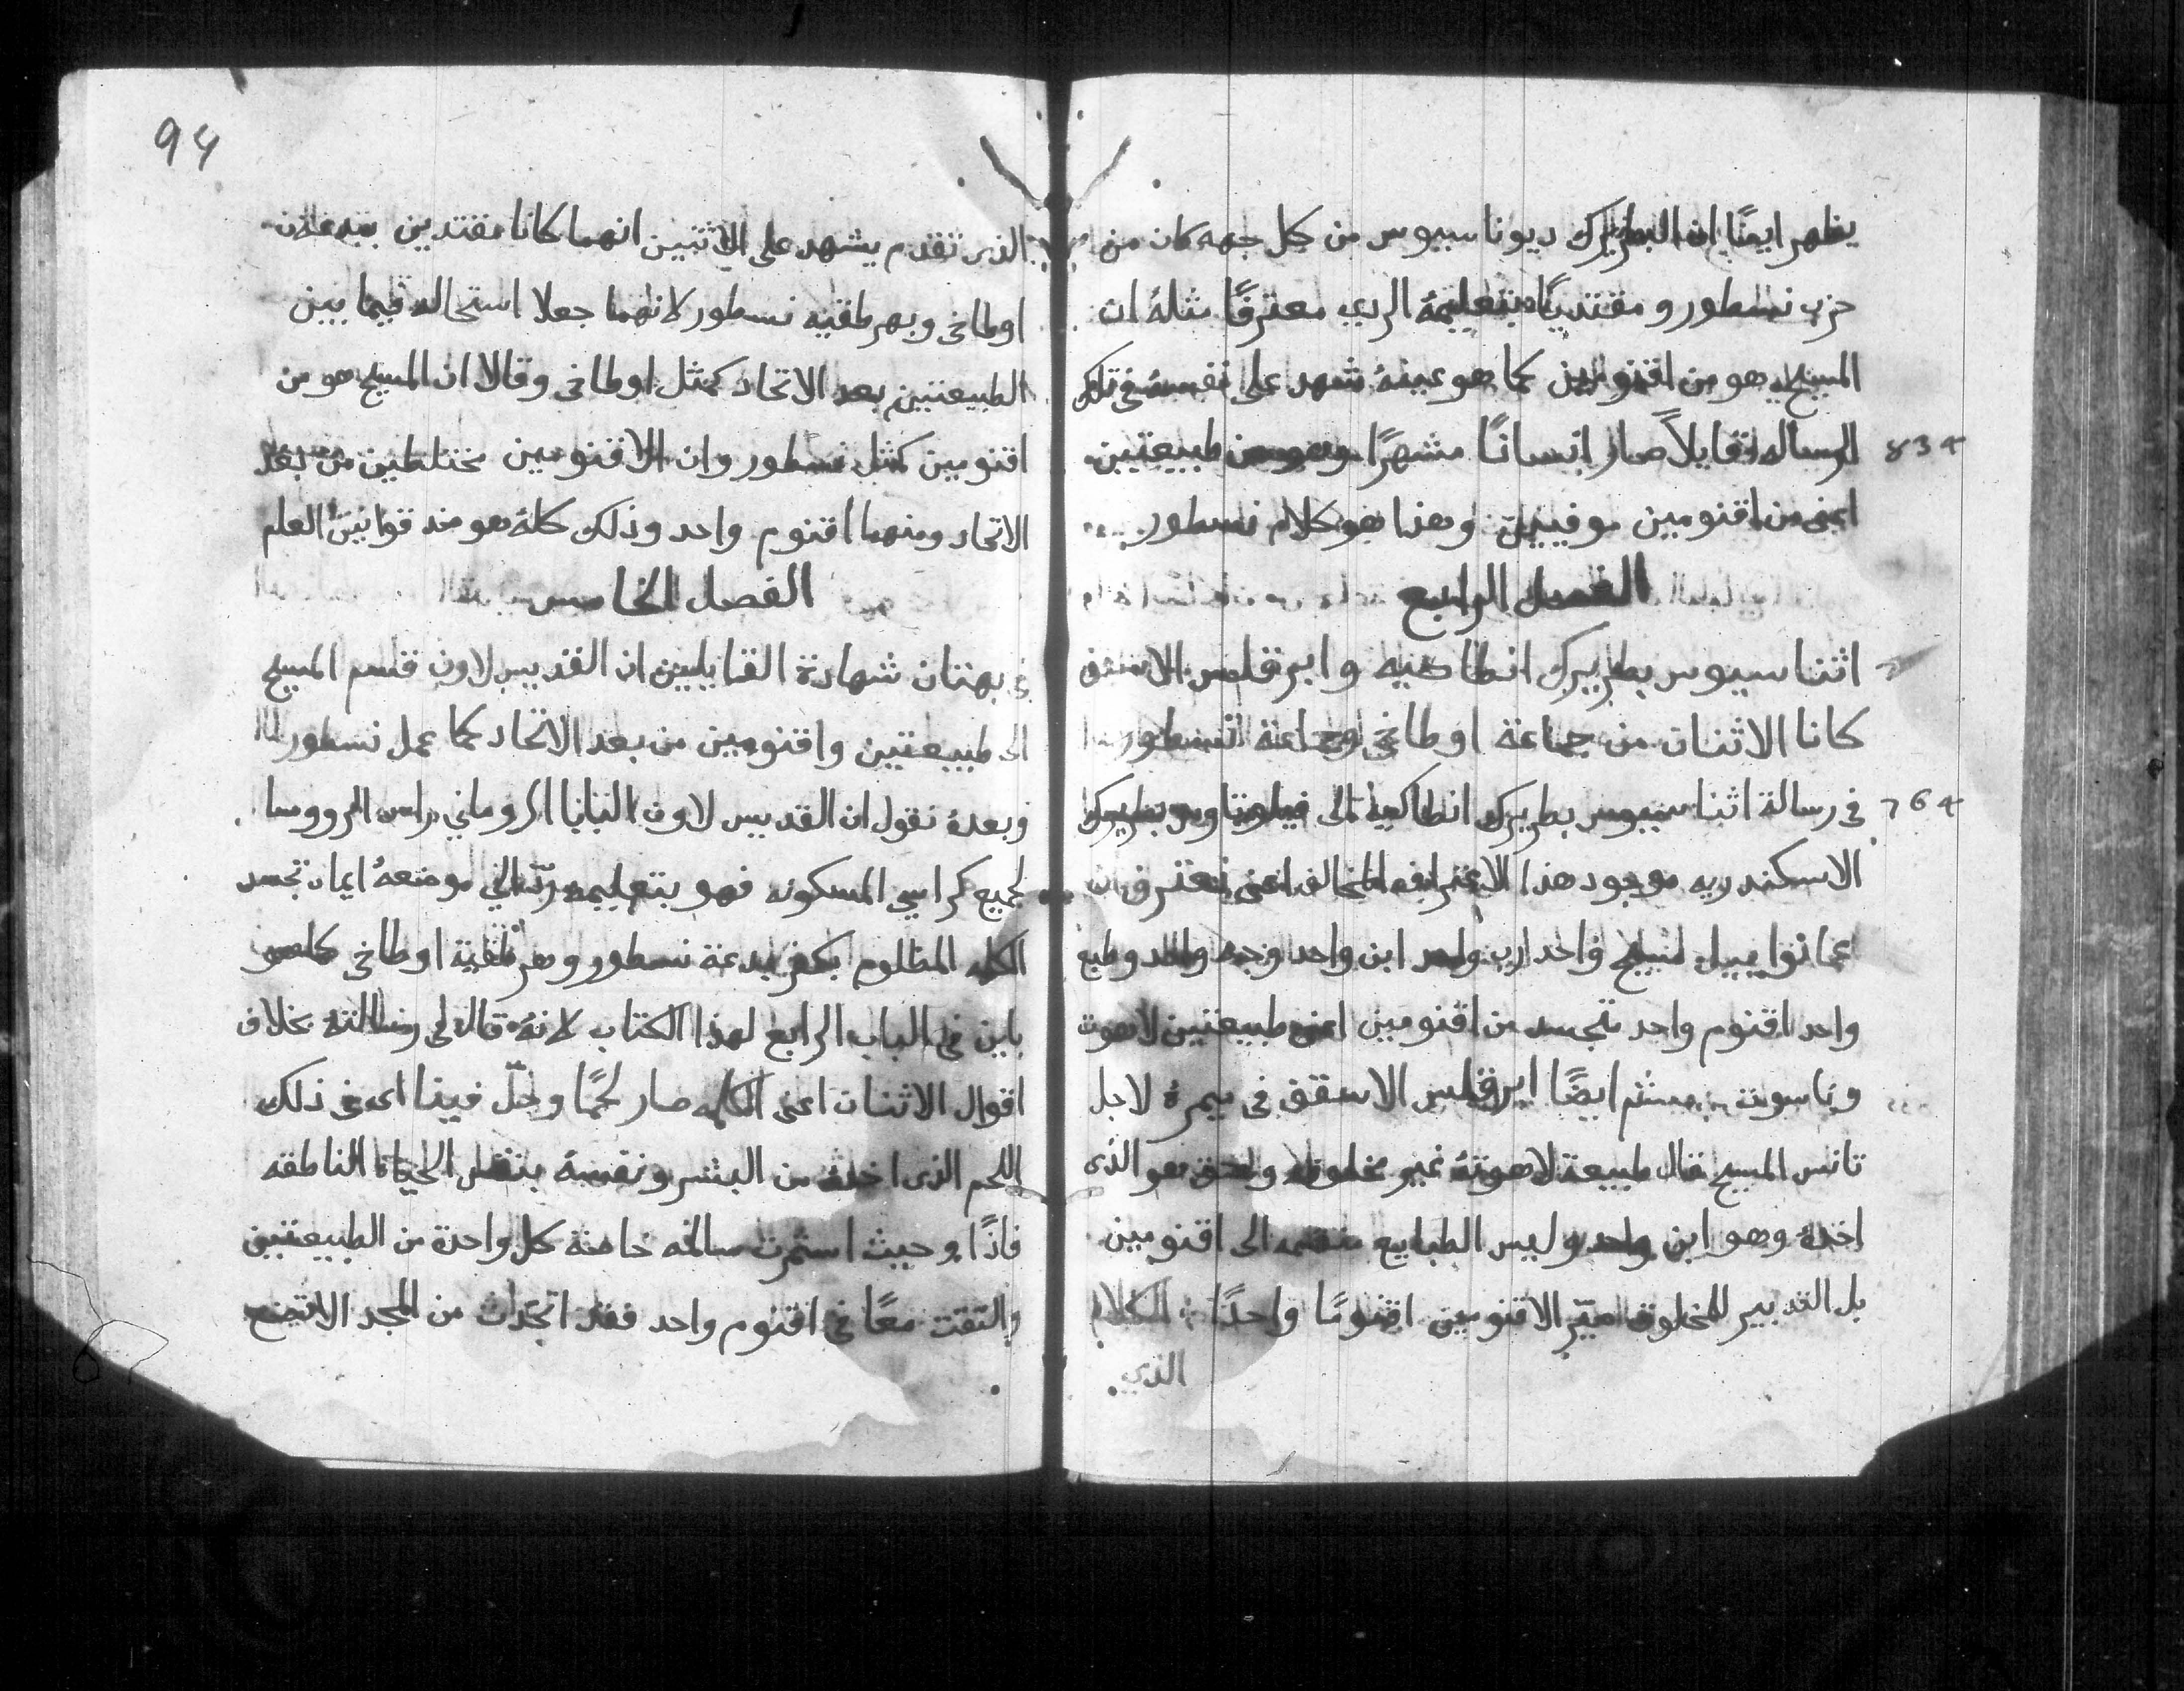 يظهر ايضًا ان البطريرك ديوناسيوس من كل جهه كان من
حزب نسطور ومقتديًا بتعليمهُ الردي معترفًا مثلهُ ان
المسيح هو من اقنومين كما هو عينهُ شهد على نفسهُ في تلك
834 الرساله قايلاً صار انسانًا مشهرًا وهو من طبيعتين
اعني من اقنومين موفيين وهذا هو كلام نسطور
الفصل الرابع
اثناسيوس بطريرك انطاكيه وابرقلس الاسقف
كانا الاثنان من جماعة اوطاخي وجماعة نسطور
764 في رسالة اثناسيوس بطريرك انطاكيه الى بطريرك
الاسكندريه موجود هذا الاعتراف المخالف اعني نعترف ان
عمانواييل المسيح واحد رب واحد ابن واحد وجه واحد وطبع
واحد اقنوم واحد متجسد من اقنومين اعني طبيعتين لاهوت
وناسوت ايضًا ابرقلس الاسقف في ميمرهُ لاجل
تانس المسيح قال طبيعة لاهوتهُ غير مخلوقه وهو الذي
اخذهُ وهو ابن واحد وليس الطبايع منقسمه الى اقنومين
بل التدبير المخلوق صيّر الاقنومين اقنومًا واحدًا الكلام
الذي
94
الذي تقدم يشهد على الاثنين انهما كانا مقتدين
اوطاخي وبهرطقيه نسطور لانهما جعلا استحاله فيما بين
الطبيعتين بعد الاتحاد كمثل اوطاخي وقالا ان المسيح هو من
اقنومين كمثل نسطور وان الاقنومين مختلطين من بعد
الاتحاد ومنهما اقنوم واحد وذلك كلهُ هو ضد قوانين العلم
الفصل الخامس
في بهتان شهادة القايلين ان القديس لاون قسم المسيح
الى طبيعتين واقنومين من بعد الاتحاد كما عمل نسطور
وبعدهُ نقول ان القديس لاون البابا الروماني راس الرووسا
لجميع كراسي المسكونه فهو بتعليمه موضعهُ ايمان تجسد
الكله المظلوم بكفر بدعة نسطور وهرطقية اوطاخي كما هو
باين في الباب الرابع لهذا الكتاب لانهُ قال في رسالتهُ بخلاف
اقوال الاثنان اعني الكلمه صار لحمًا وحلّ فينا اي في ذلك
اللحم الذي اخذهُ من البشر ونفسهُ بنفس الحياة الناطقه
فاذًا وحيث استمرت سالمه خاصة كل واحدة من الطبيعتين
والتقت معًا في اقنوم واحد فقد اتخذت من المجد الاتضع